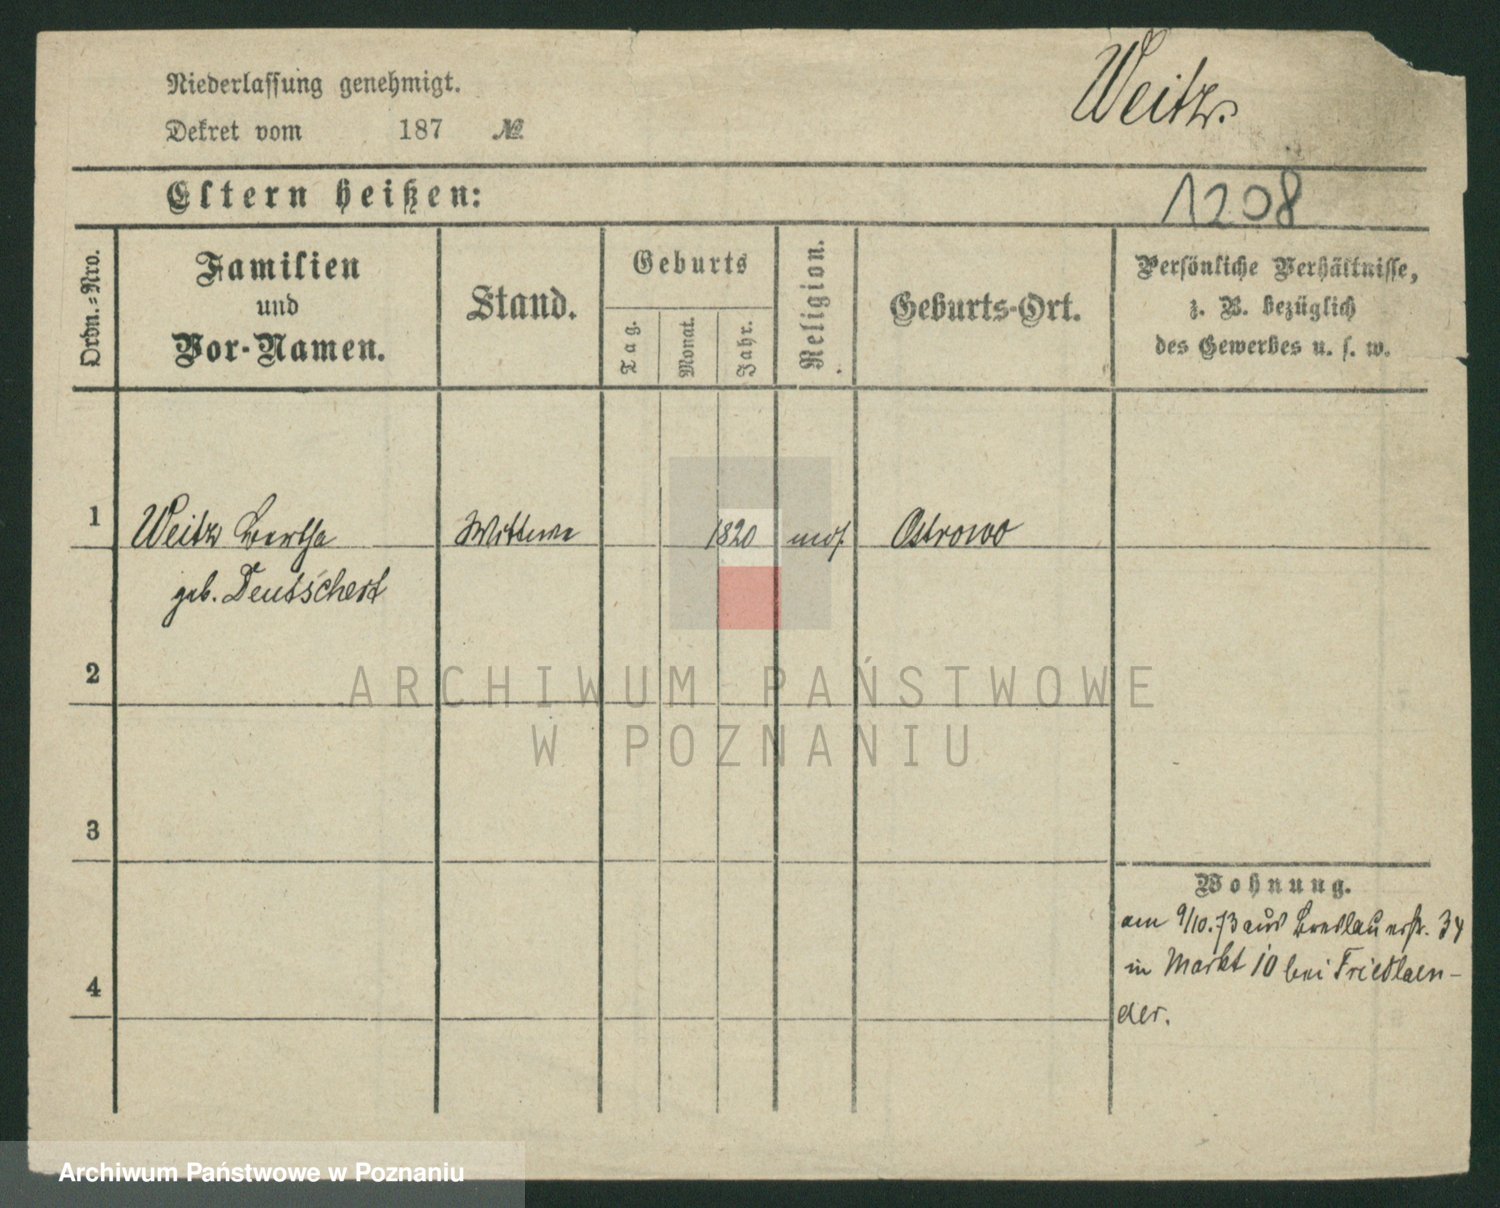 Niederlassung genehmigt.
Weitz.
Dekret vom 187 №
Eltern heißen:
1208
Ordn.-Nro.
Familien
und
Vor-Namen.
Stand.
Geburts
Tag.
Monat.
Jahr.
Religion.
Geburts-Ort.
Persönliche Verhältnisse,
z. B. bezüglich
des Gewerbes u. s. w.
1 Weitz Bertha Wittwe 1820 mos. Ostrowo
geb.
2
ARCHIWUM PAŃSTWOWE
W POZNANIU
3
Wohnung.
am 9/10.73 aus Breslauerstr. 34
in Markt 10 bei Friedlaen-
der.
4
Archiwum Państwowe w Poznaniu